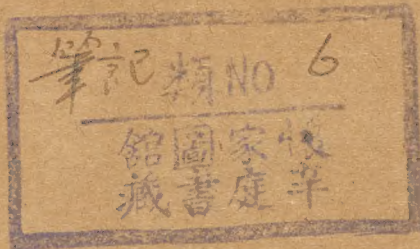 筆記類NO 6
家庭
圖書
館藏